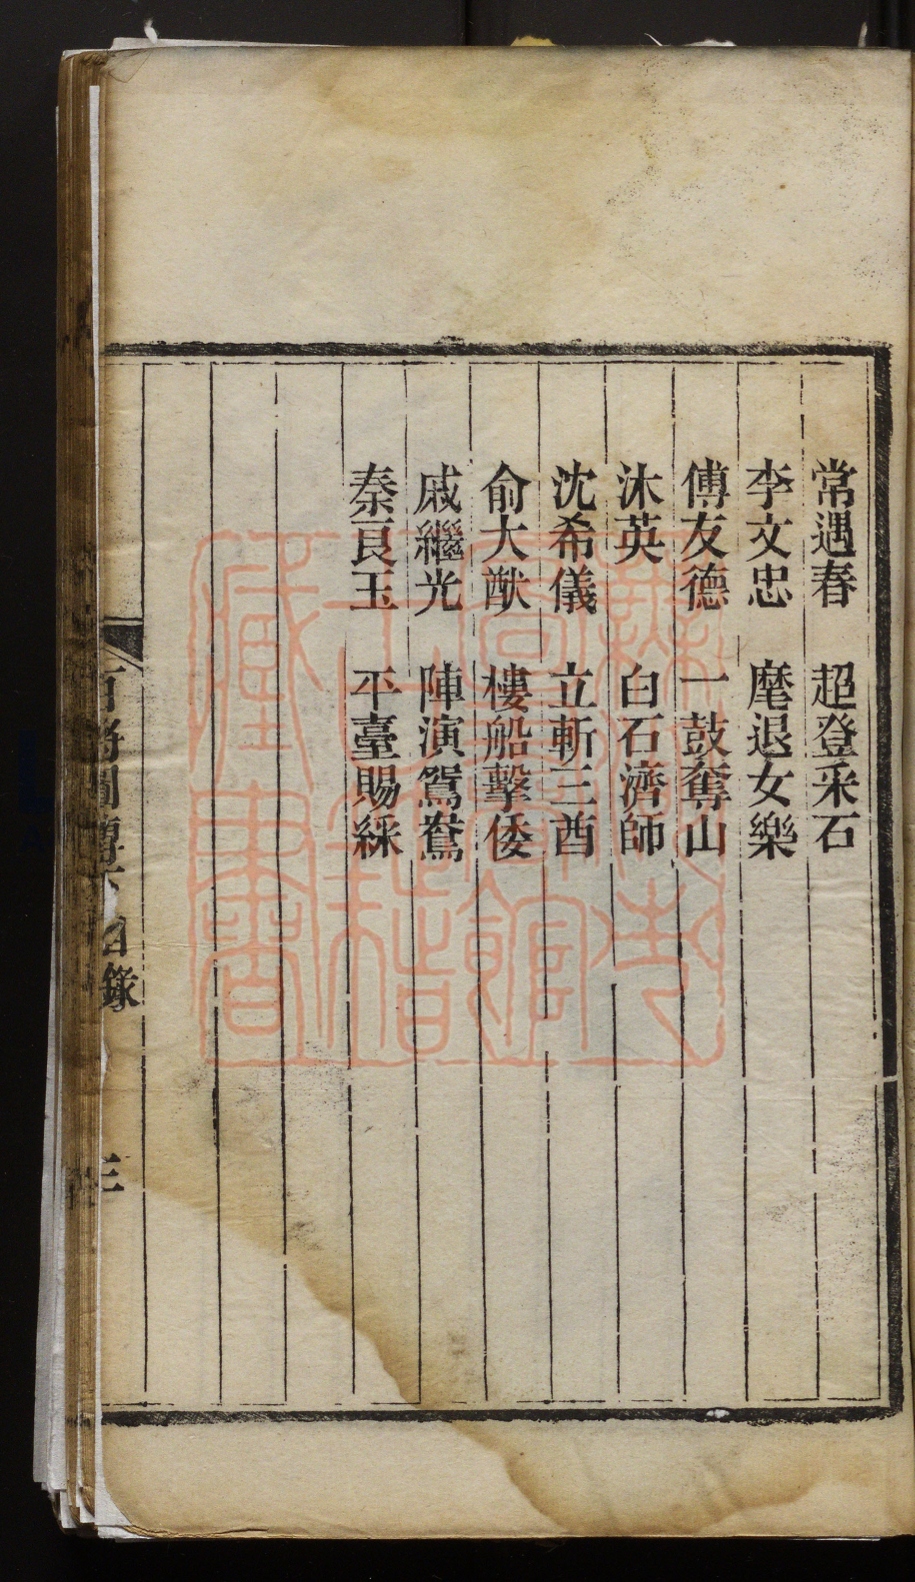 常遇春 超登采石
李文忠 麾退女樂
傅友德 一鼓奪山
沐英 白石濟師
沈希儀 立斬三酋
俞大猷 樓船擊倭
戚繼光 陣演鴛鴦
秦良玉 平臺賜綵
百將圖傳下目錄
三